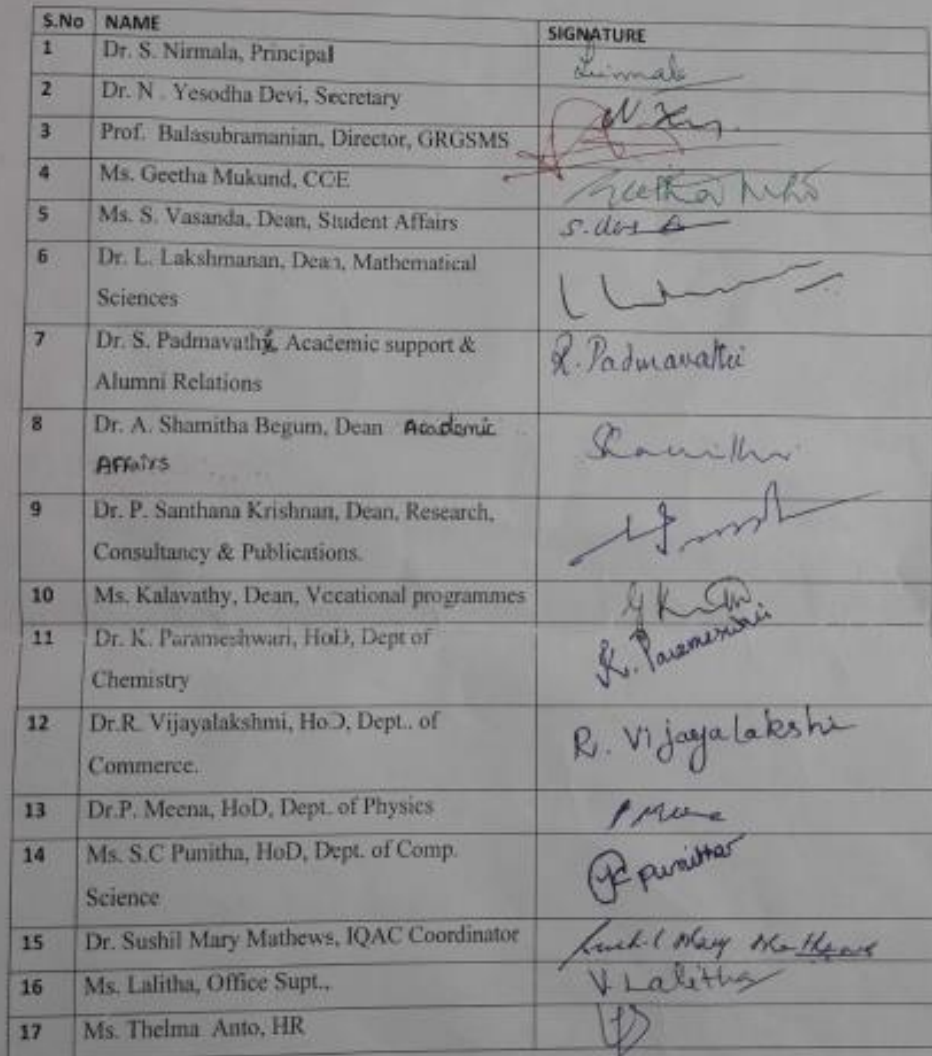 S.No NAME SIGNATURE
1 Dr. S. Nirmala, Principal
2 Dr. N . Yesodha Devi, Secretary
3 Prof. Balasubramanian, Director, GRGSMS
4 Ms. Geetha Mukund, CCE
5 Ms. S. Vasanda, Dean, Student Affairs
6 Dr. L. Lakshmanan, Dean, Mathematical
Sciences
7 Dr. S. Padmavathy, Academic support & R. Padmavathi
Alumni Relations
8 Dr. A. Shamitha Begum, Dean Academic
Affairs
9 Dr. P. Santhana Krishnan, Dean, Research,
Consultancy & Publications.
10 Ms. Kalavathy, Dean, Vocational programmes
11 Dr. K. Parameshwari, HoD, Dept of K. Parameswari
Chemistry
12 Dr.R. Vijayalakshmi, HoD, Dept.. of R. Vijayalakshi
Commerce.
13 Dr.P. Meena, HoD, Dept. of Physics P Meena
14 Ms. S.C Punitha, HoD, Dept. of Comp. punitha
Science
15 Dr. Sushil Mary Mathews, IQAC Coordinator Sushil Mary Mathews
16 Ms. Lalitha, Office Supt., V Lalitha
17 Ms. Thelma Anto, HR